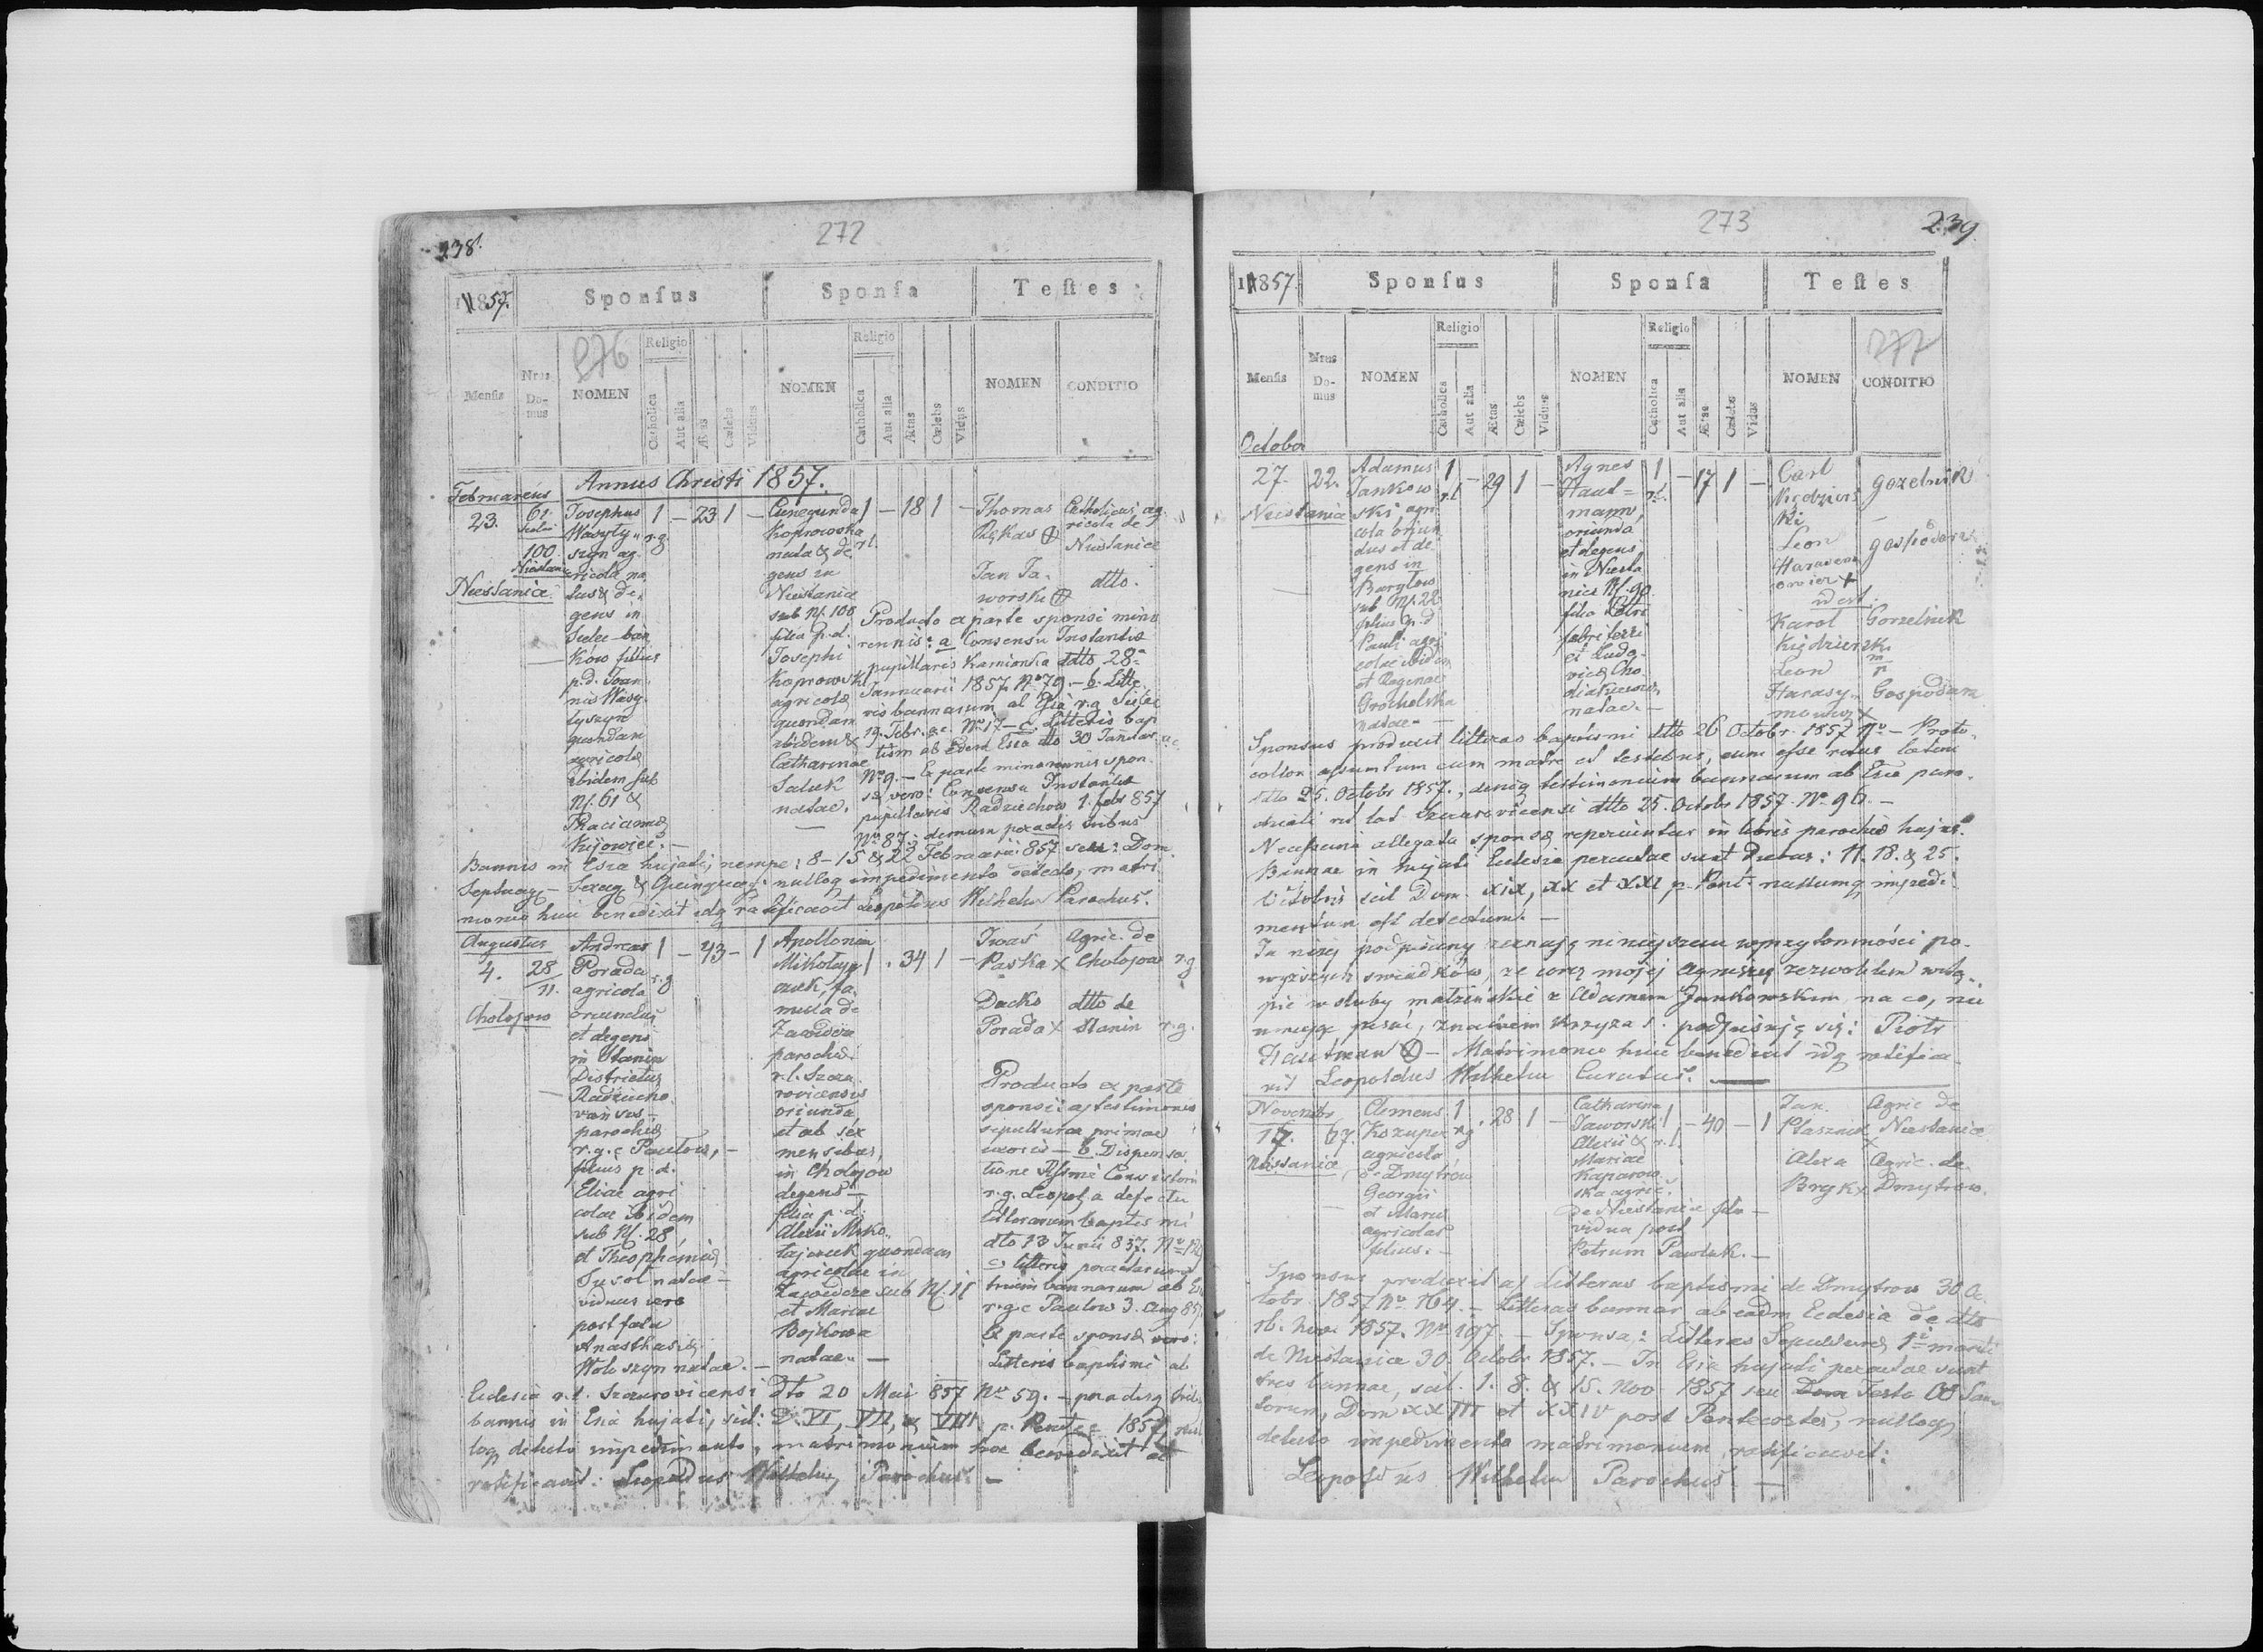 238.
272
1857.
Sponsus
Sponsa
Testes
Mensis
Nrus Domus
276
NOMEN
Religio
Catholica
Aut alia
Ætas
Cœlebs
Viduus
NOMEN
Religio
Catholica
Aut alia
Ætas
Cœlebs
Vidua
NOMEN
CONDITIO
Annus Christi 1857.
Februarius
23.
61
100
Niestanice
Niestanice
Josephus
Wasyty-
szyn ag-
ricola na
tus & de-
gens in
Sielec bań
ków filius
p.d. Joan
nis Wasy-
tyszyn
quondam
agricolæ
ibidem sub
N. 61 &
Kijowiec. —
1 r.g. — 23 1 —
Cunegunda
Koprowska
nata & de
gens in
Niestanice
sub N. 100
filia p.d.
Josephi
Koprowski
agricolæ
quondam
ibidem &
Catharinae
Saluk
natae.
1 r.l. — 18 1 —
Thomas
Catholicus ag-
ricola de
Niestanice
Jan Ja-
worski
dtto.
Producto ex parte sponsi mino
rennis: a Consensu Instantiæ
pupillaris Kamionka dtto 28ª
Jannuarii 1857. Nº 79. — b. Litte-
ris bannarum
19. Febr. a.c. Nº 17 — c. Litteris bap
tism ab edem Ecsia dto 30 Januar. a.c.
Nº 9. — Ex parte minorennis spon-
sæ vero: Consensu Instantiæ
pupillaris Radziechow 1. febr 857
Nº 87; demum peractis tribus
Bannis in Ecsia hujati, nempe: 8 — 15 & 22 Februarii 857 seu: Dom.
Septuag — Sexag & Quinquag: nulloq impedimento detecto, matri
monio huic benedixit idq ratificavit Leopoldus Wilhelm Parochus.
Augustus
4.
28
11.
Cholojow
Andreas
Porada
agricola
oriundus
et degens
in Stanin
Districtus
Radziecho
viensis,
parochiæ
r.g. e Pawlow, —
filius p.d.
Eliae agri
colae ibidem
sub N. 28
et Theophimiæ
Susol natae —
viduus vero
post fata
Anasthasiæ
Woloszyn natae. —
1 r.g. — 43 — 1
Apollonia
Mikolaj
czuk, fa-
mula de
Zawidcze
parochiæ
r.l. Szczu
rovicensis
oriunda,
et ab sex
mensibus,
in Cholojow
degens —
filia p.d.
Alexii Miko-
lajczuk quondam
agricolae in
Zawidcze sub N. 15
et Mariae
Bojkowa
natae. —
1 . 34 1 —
Iwaś
Paska x
Agric. de
Cholojow r.g.
Dacko
Porada x
dtto de
Stanin r.g.
Producto ex parte
sponsi: a) testimonio
sepulturæ primae
uxoris — b. Dispensa
tione Ilsmi Consistorii
r.g. Leopol. a defectu
Litterarum baptismi
dto 13 Junii 857. Nº
c) litteris peractarum
trium bannarum ab
r.g. e Pawlow 3. Aug 857
Ex parte sponsæ vero:
Litteris baptismi ab
Ecclesia r.l. Szczurovicensi dto 20 Mai 857 Nº 59. — peractisq tribus
bannis in Ecsia hujati, scil: D. VI, VII, & VIII p. Pent. 1857, nul
loq detecto impedimento, matrimonium hoc benedixit et
ratificavit: Leopoldus Wilhelm, Parochus. —
273
239.
1857.
Sponsus
Sponsa
Testes
Mensis
Nrus Domus
NOMEN
Religio
Catholica
Aut alia
Ætas
Cœlebs
Viduus
NOMEN
Religio
Catholica
Aut alia
Ætas
Cœlebs
Vidua
NOMEN
277
CONDITIO
October
27.
22.
Niestanice
Adamus
Jankow
ski, agri
cola oriun
dus et de
gens in
Barylow
sub N. 22
filius p.d
Pauli agri
colae ibidem
et Reginae
Grocholska
natae. —
1 r.l. — 29 1 —
Agnes
Haut=
mann,
oriunda
et degens
in Niesta
nice N. 90
filia Petri
fabri ferri
et Ludo-
vicæ Cho
natae. —
1 r.l. — 17 1 —
Carl
Kiędziers
ki
gozelnik
Leon
gospodarz
+
Karol
Kiędzierzki
Gorzelnik
Leon
Harasy-
mowicz x
Gospodarz
Sponsus produxit litteras baptismi dtto 26 Octobr. 1857 Nº — Proto-
collon assumtum cum matre et testibus, eum esse ritus latini
dtto 25. Octobr 1857., deniq testimonium bannarum ab Ecsia paro-
chiali rit lat Szczurovicensi dtto 25. Octobr 1857 Nº 96. —
allegata sponsæ reperiuntur in libris parochiæ hujat.
Bannae in hujati Ecclesia peractae sunt diebus: 11. 18. & 25.
Octobris scil Dom XIX, XX et XXI p. Pent. nullumq impedi
mentum est detectum. —
Ja niżej podpisany zeznaję niniejszem w przytomności po-
wyższych swiadków, ze corcę mojej Agnieszce zezwoliłem wstą-
pić w sluby małzeńskie z Adamem Jankowskim na co, nie
umiejąc pisać, znakiem krzyza s. podpisuję się: Piotr
Hautman — Matrimonio huic benedixit idq ratifica
vit Leopoldus Wilhelm Curatus. —
Novembr
17.
67.
Niestanice
Clemens
Koszuper
agricola
e Dmytrów
Georgii
et Mariæ
agricolae
filius. —
1 r.g. . 28 1 —
Catharina
Jaworski
Alexii &
Mariae
Kaparow
ska agric.
de Niestanice filia —
vidua post
Petrum Pawluk. —
1 r.l. — 40 — 1
Jan
Ptasznik
x
Agric de
Niestanice
Alexa
Bryk x
Agric. de
Dmytrow.
Sponsus produxit a) Litteras baptismi de Dmytrow 30 Oc
tobr. 1857 Nº 164. — Litteras bannar. ab eadm Ecclesia de dtto
16. Nov. 1857. Nº 197. — Sponsa: Litteras Sepulturæ 1i mariti
de Niestanice 30. Octobr 1857. — In Ecsia hujati peractae sunt
tres bannae, scil. 1. 8. & 15. Nov 1857 seu Festo OO Sanc
torum, Dom XXIII et XXIV post Pentecostes, nulloq
detecto impedimento matrimonium ratificavit:
Leopoldus Wilhelm Parochus. —